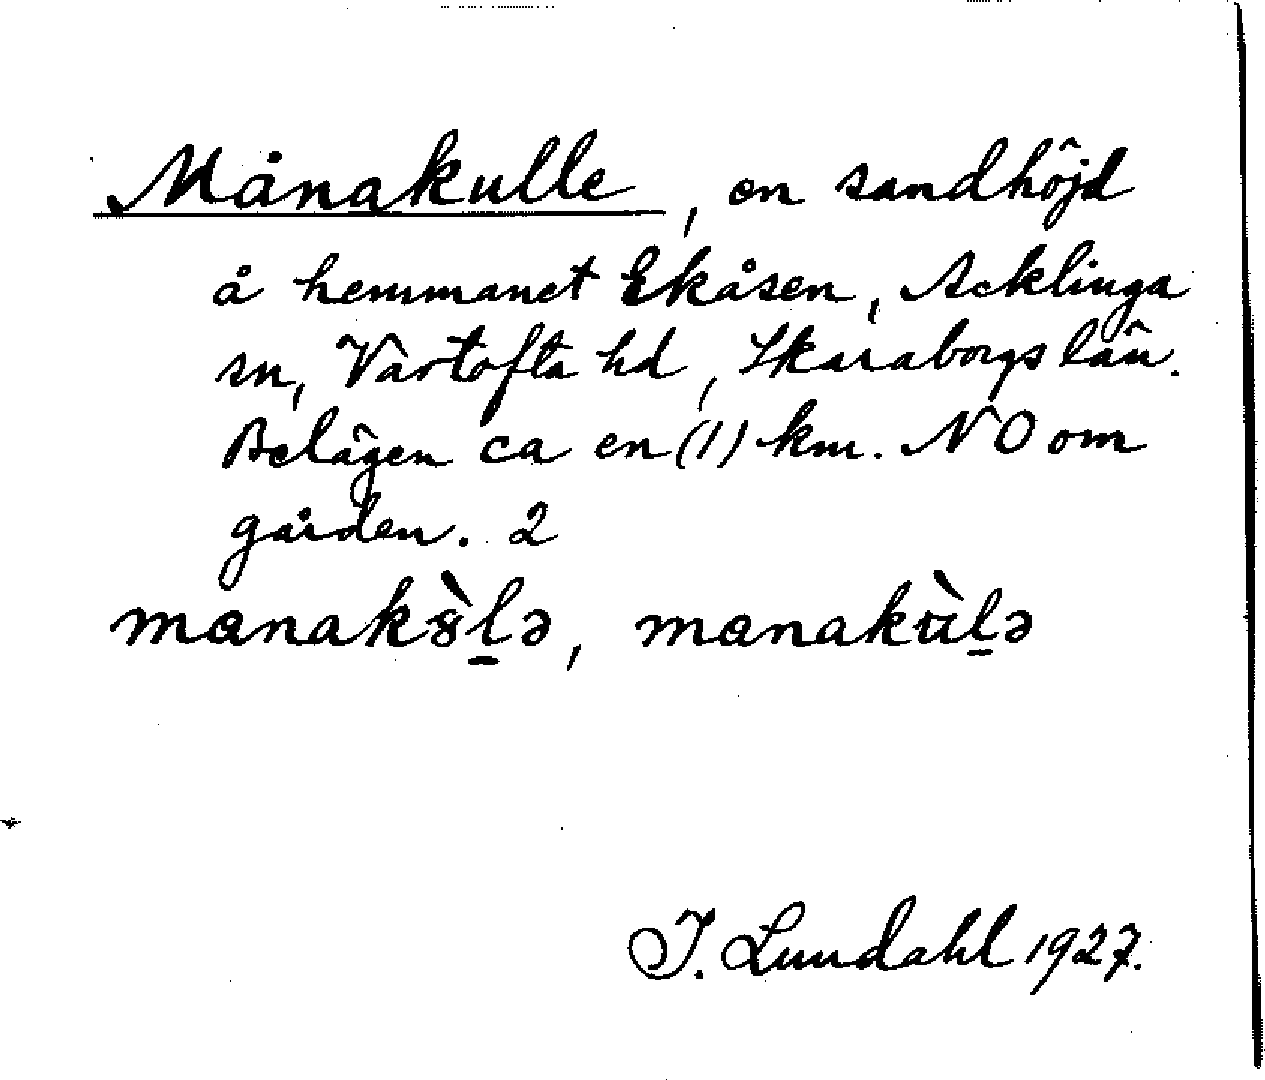 Månakulle, en sandhöjd
å hemmanet Ekåsen, Acklinga
sn, Vartofta hd, Skaraborgs län.
Belägen ca en (1) km. NO om
gården. 2
manakꝏ̀l̠ə, manakùl̠ə
J. Lundahl 1927.